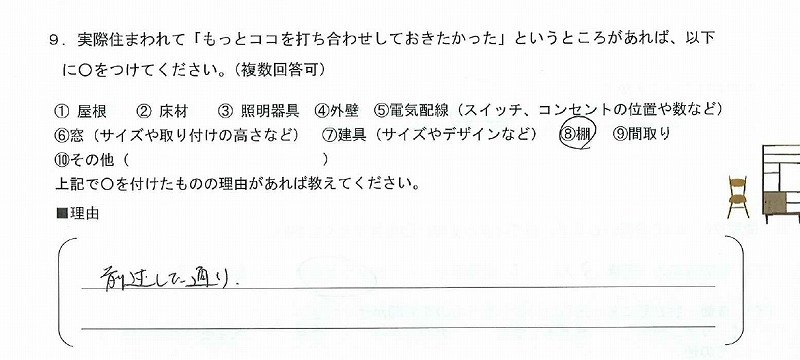 9．実際住まわれて「もっとココを打ち合わせしておきたかった」というところがあれば、以下
に〇をつけてください。（複数回答可）
① 屋根　② 床材　③ 照明器具　④外壁　⑤電気配線（スイッチ、コンセントの位置や数など）
⑥窓（サイズや取り付けの高さなど）　⑦建具（サイズやデザインなど）　⑧棚　⑨間取り
⑩その他（　　　　　　　　　　　　）
上記で〇を付けたものの理由があれば教えてください。
■理由
前述した通り.